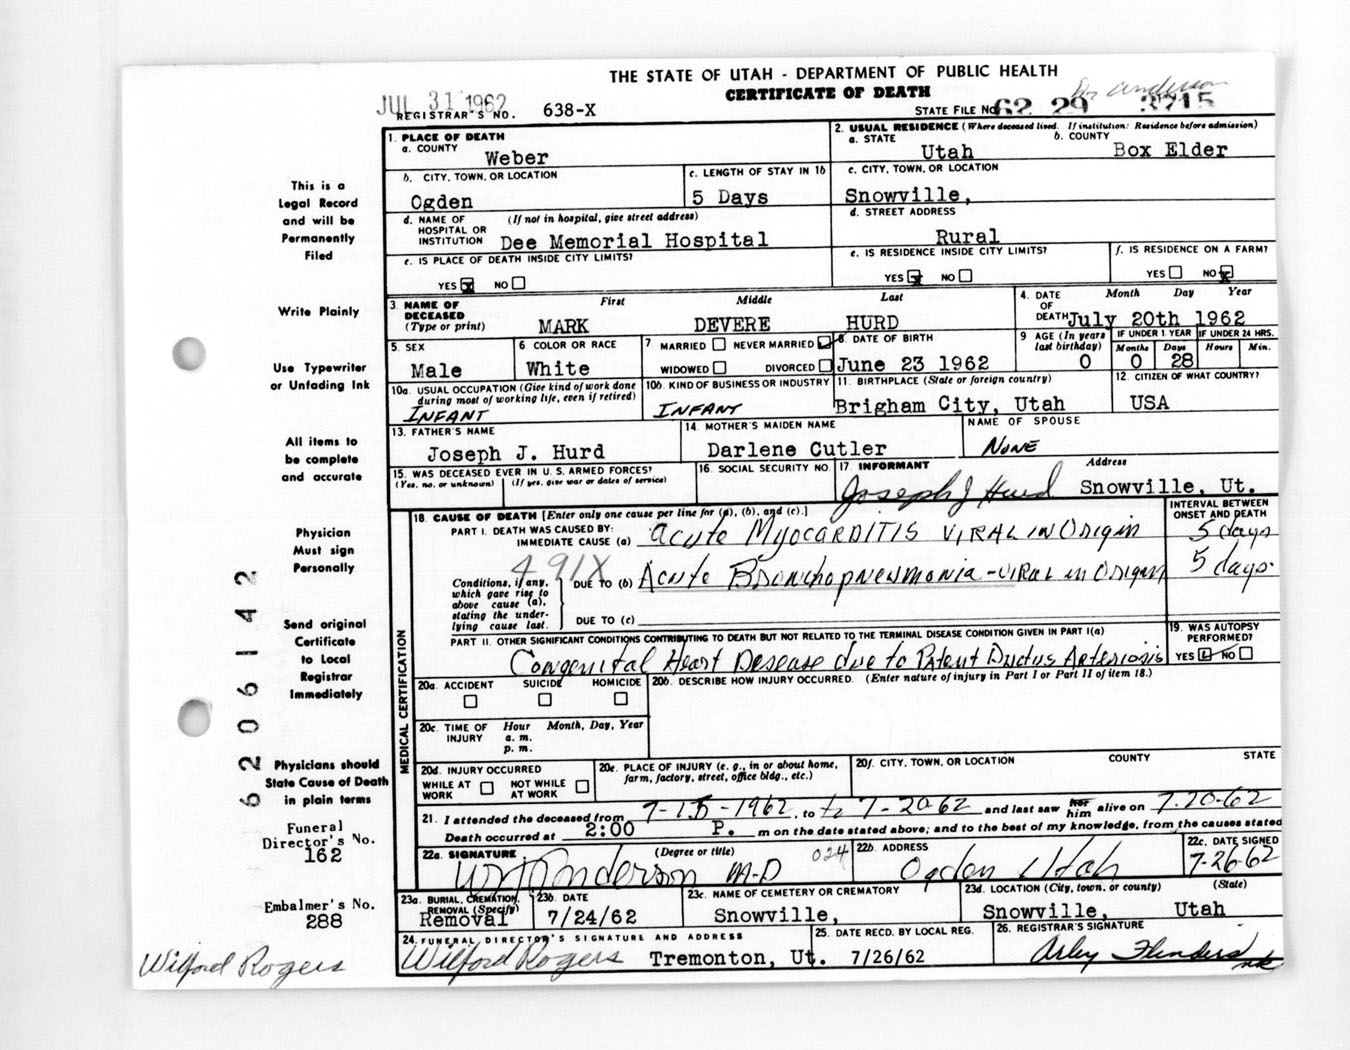 THE STATE OF UTAH - DEPARTMENT OF PUBLIC HEALTH
CERTIFICATE OF DEATH
Dr Anderson
JUL 31 1962
REGISTRAR'S NO. 638-X
STATE FILE No. 62 29 3715
1. PLACE OF DEATH
a. COUNTY
Weber
2. USUAL RESIDENCE (Where deceased lived. If institution: Residence before admission)
a. STATE
Utah
b. COUNTY
Box Elder
b. CITY, TOWN, OR LOCATION
Ogden
c. LENGTH OF STAY IN 1b
5 Days
c. CITY, TOWN, OR LOCATION
Snowville,
d. NAME OF HOSPITAL OR INSTITUTION
(If not in hospital, give street address)
Dee Memorial Hospital
d. STREET ADDRESS
Rural
e. IS PLACE OF DEATH INSIDE CITY LIMITS?
YES x NO
e. IS RESIDENCE INSIDE CITY LIMITS?
YES x NO
f. IS RESIDENCE ON A FARM?
YES NO x
3. NAME OF DECEASED (Type or print)
First Middle Last
MARK DEVERE HURD
4. DATE OF DEATH
Month Day Year
July 20th 1962
5. SEX
Male
6. COLOR OR RACE
White
7 MARRIED NEVER MARRIED
WIDOWED DIVORCED
8. DATE OF BIRTH
June 23 1962
9 AGE (In years last birthday)
0
IF UNDER 1 YEAR
Months Days
0 28
IF UNDER 24 HRS.
Hours Min.
10a. USUAL OCCUPATION (Give kind of work done during most of working life, even if retired)
INFANT
10b. KIND OF BUSINESS OR INDUSTRY
INFANT
11. BIRTHPLACE (State or foreign country)
Brigham City, Utah
12. CITIZEN OF WHAT COUNTRY?
USA
13. FATHER'S NAME
Joseph J. Hurd
14. MOTHER'S MAIDEN NAME
Darlene Cutler
NAME OF SPOUSE
None
15. WAS DECEASED EVER IN U. S. ARMED FORCES?
(Yes, no, or unknown) (If yes, give war or dates of service)
16. SOCIAL SECURITY NO.
17. INFORMANT Address
Joseph J Hurd Snowville, Ut.
18. CAUSE OF DEATH [Enter only one cause per line for (a), (b), and (c).]
INTERVAL BETWEEN ONSET AND DEATH
PART I. DEATH WAS CAUSED BY:
IMMEDIATE CAUSE (a) Acute Myocarditis Viral in Origin 5 days
491X
Conditions, if any, which gave rise to above cause (a), stating the underlying cause last.
DUE TO (b) Acute Bronchopneumonia - Viral in Origin 5 days.
DUE TO (c)
PART II. OTHER SIGNIFICANT CONDITIONS CONTRIBUTING TO DEATH BUT NOT RELATED TO THE TERMINAL DISEASE CONDITION GIVEN IN PART I(a)
Congenital Heart Desease due to Patent Ductus Arteriosis
19. WAS AUTOPSY PERFORMED?
YES NO
20a. ACCIDENT SUICIDE HOMICIDE
20b. DESCRIBE HOW INJURY OCCURRED. (Enter nature of injury in Part I or Part II of item 18.)
20c. TIME OF INJURY
Hour Month, Day, Year
a. m.
p. m.
20d. INJURY OCCURRED
WHILE AT WORK NOT WHILE AT WORK
20e. PLACE OF INJURY (e. g., in or about home, farm, factory, street, office bldg., etc.)
20f. CITY, TOWN, OR LOCATION COUNTY STATE
21. I attended the deceased from 7-15-1962, to 7-20-62 and last saw her him alive on 7-20-62
Death occurred at 2:00 P. m on the date stated above; and to the best of my knowledge, from the causes stated
22a. SIGNATURE (Degree or title)
W Anderson M-D 024
22b. ADDRESS
Ogden Utah
22c. DATE SIGNED
7-26-62
23a. BURIAL, CREMATION, REMOVAL (Specify)
Removal
23b. DATE
7/24/62
23c. NAME OF CEMETERY OR CREMATORY
Snowville,
23d. LOCATION (City, town, or county) (State)
Snowville, Utah
24. FUNERAL DIRECTOR'S SIGNATURE AND ADDRESS
Wilford Rogers Tremonton, Ut.
25. DATE RECD. BY LOCAL REG.
7/26/62
26. REGISTRAR'S SIGNATURE
MEDICAL CERTIFICATION
This is a
Legal Record
and will be
Permanently
Filed
Write Plainly
Use Typewriter
or Unfading Ink
All items to
be complete
and accurate
Physician
Must sign
Personally
Send original
Certificate
to Local
Registrar
Immediately
Physicians should
State Cause of Death
in plain terms
Funeral
Director's No.
162
Embalmer's No.
288
Wilford Rogers
62 206142